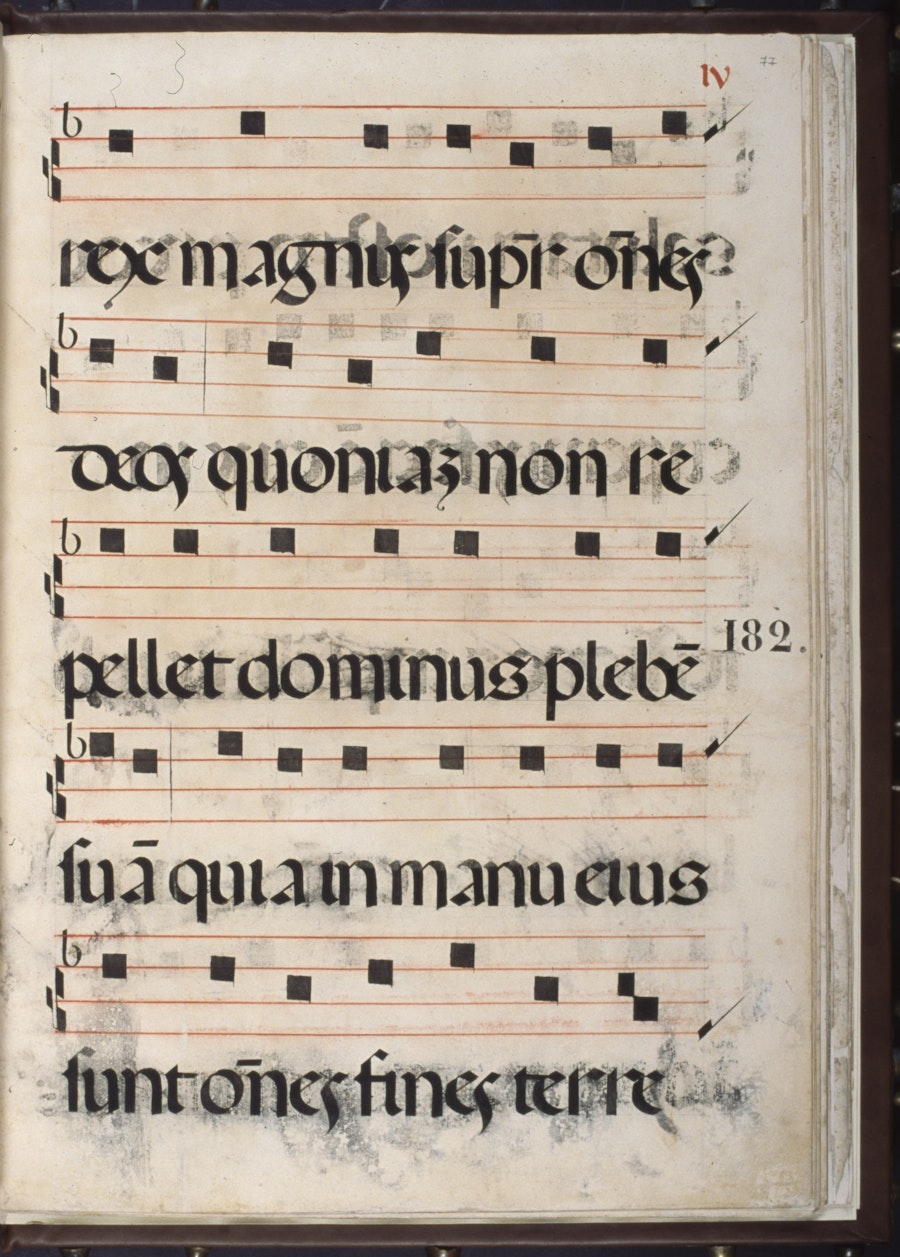 IV 77
rex magnus sup̄r om̄es
deos quoniaꝫ non re
pellet dominus plebē
182.
suā quia in manu eius
sunt om̄es fines terre